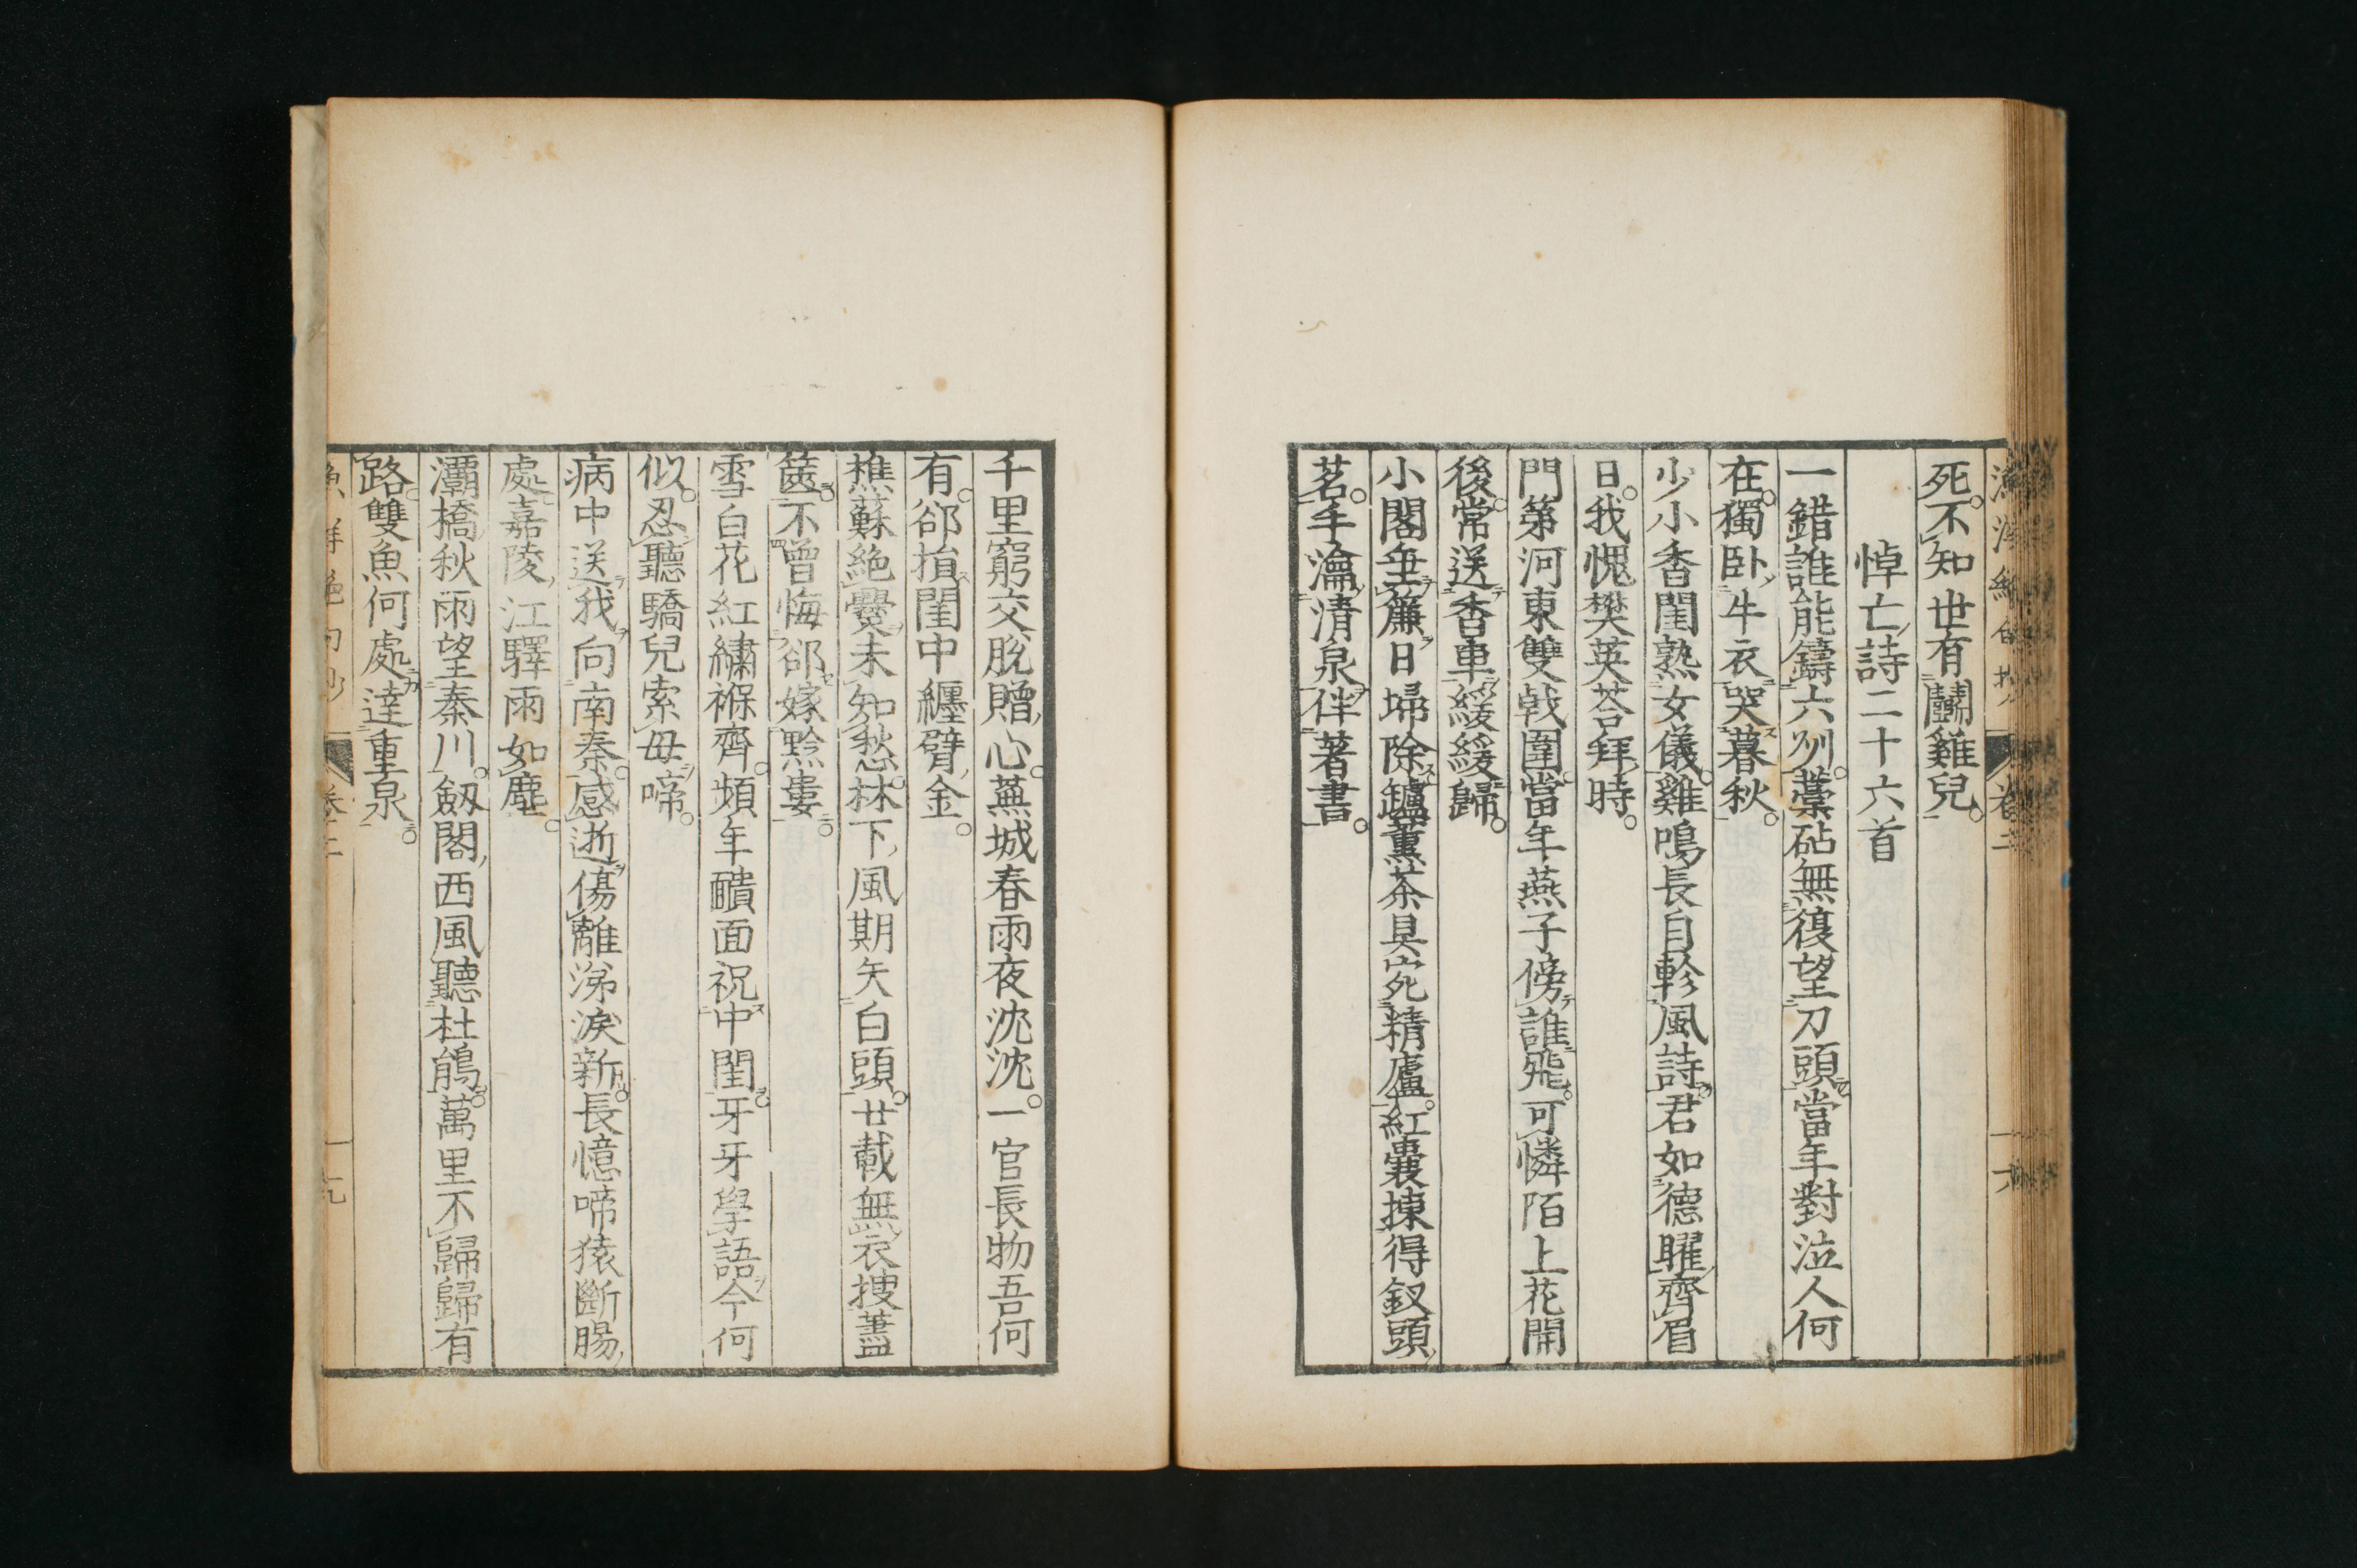 死。不知世有鬬雞兒。
悼亡詩二十六首
一錯誰能鑄六州。藁砧無復望刀頭。當年對泣人何
在。獨卧牛衣哭暮秋。
少小香閨熟女儀。雞鳴長自軫風詩。君如德曜齊眉
日。我愧樊英荅拜時。
門第河東雙戟圍。當年燕子傍誰飛。可憐陌上花開
後。常送香車緩緩歸。
小閣垂簾日埽除。鑪薰茶具宛精廬。紅囊揀得釵頭
茗。手瀹清泉伴著書。
千里窮交脫贈心。蕪城春雨夜沈沈。一官長物吾何
有。却損閨中纏臂金。
樵蘇絶爨未知愁。林下風期矢白頭。廿載無衣搜藎
篋。不曾悔却嫁黔婁。
雪白花紅繡褓齊。頻年靧面祝中閨。牙牙學語今何
似。忍聽驕兒索母啼。
病中送我向南秦。感逝傷離涕淚新。長憶啼猿斷腸
處。嘉陵江驛雨如塵。
灞橋秋雨望秦川。劔閣西風聽杜鵑。萬里不歸歸有
路。雙魚何處達重泉。